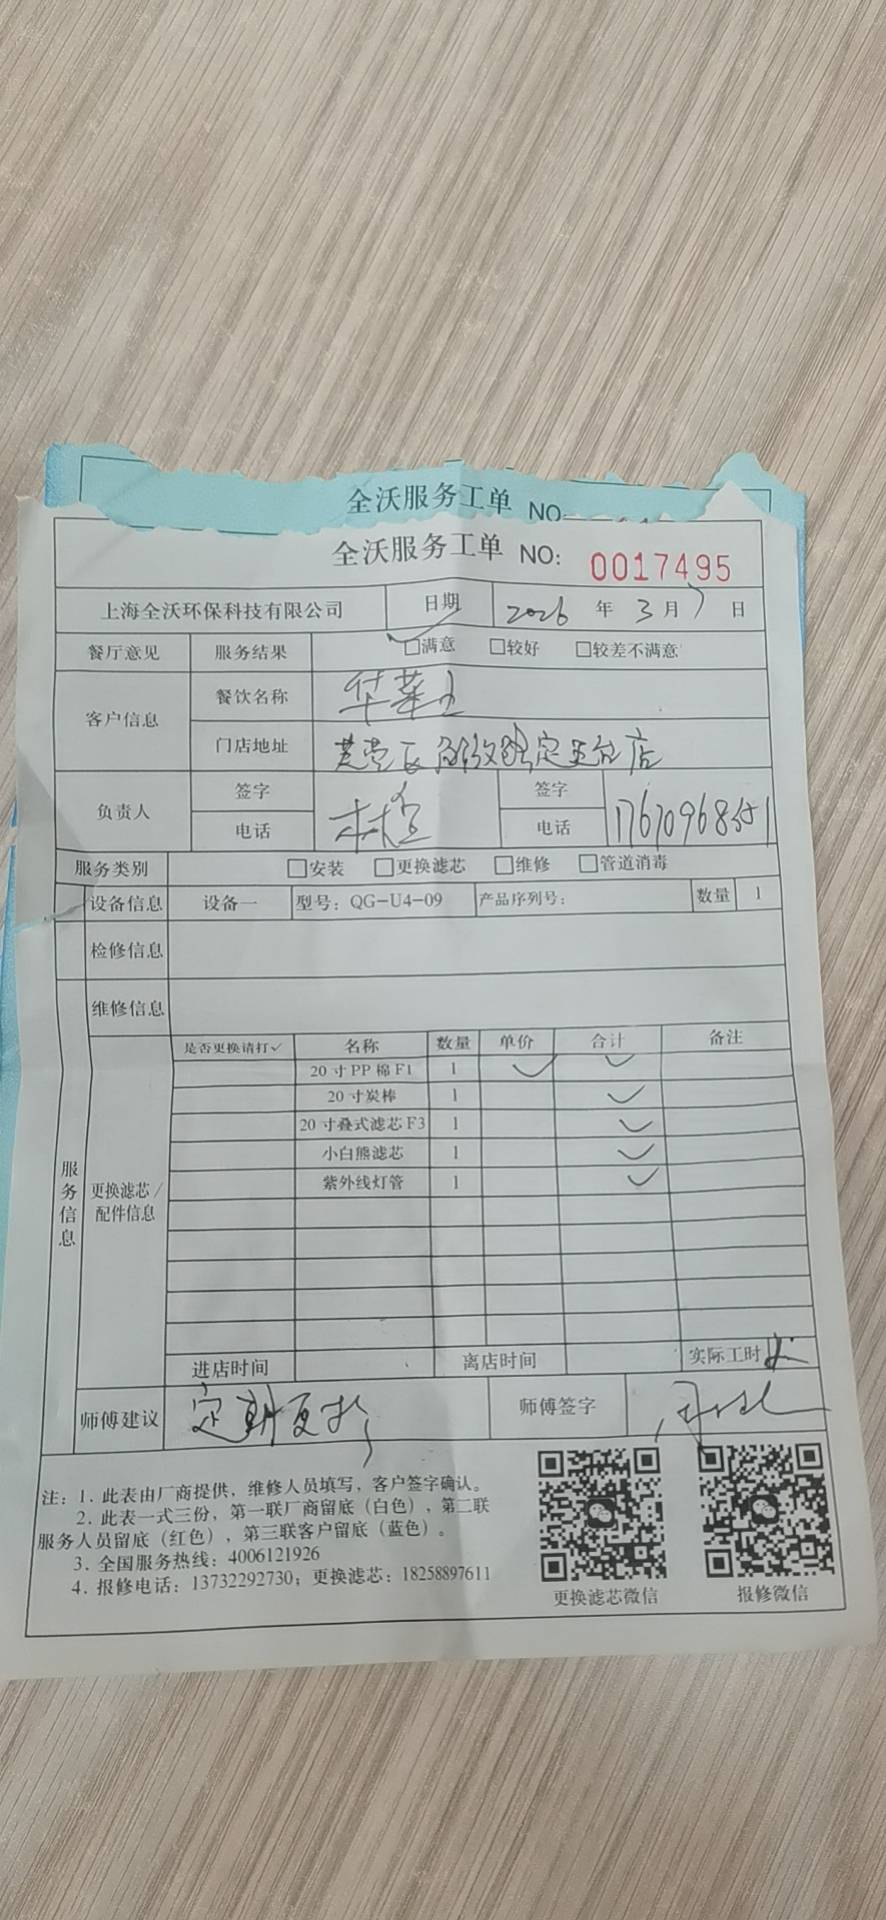 全沃服务工单 NO:
全沃服务工单 NO: 0017495
上海全沃环保科技有限公司 日期 2026 年 3 月 7 日
餐厅意见 服务结果 □满意 □较好 □较差不满意
客户信息 餐饮名称 华莱士
门店地址 芙蓉区 店
负责人 签字 签字
电话 电话
服务类别 □安装 □更换滤芯 □维修 □管道消毒
设备信息 设备一 型号：QG-U4-09 产品序列号： 数量 1
检修信息
维修信息
服务信息
更换滤芯/配件信息
是否更换请打✓ 名称 数量 单价 合计 备注
20寸PP棉F1 1 ✓ ✓
20寸炭棒 1 ✓
20寸叠式滤芯F3 1 ✓
小白熊滤芯 1 ✓
紫外线灯管 1 ✓
进店时间 离店时间 实际工时
师傅建议 定期更换 师傅签字
注：1. 此表由厂商提供，维修人员填写，客户签字确认。
2. 此表一式三份，第一联厂商留底（白色），第二联
服务人员留底（红色），第三联客户留底（蓝色）。
3. 全国服务热线：4006121926
4. 报修电话：13732292730；更换滤芯：18258897611
更换滤芯微信 报修微信